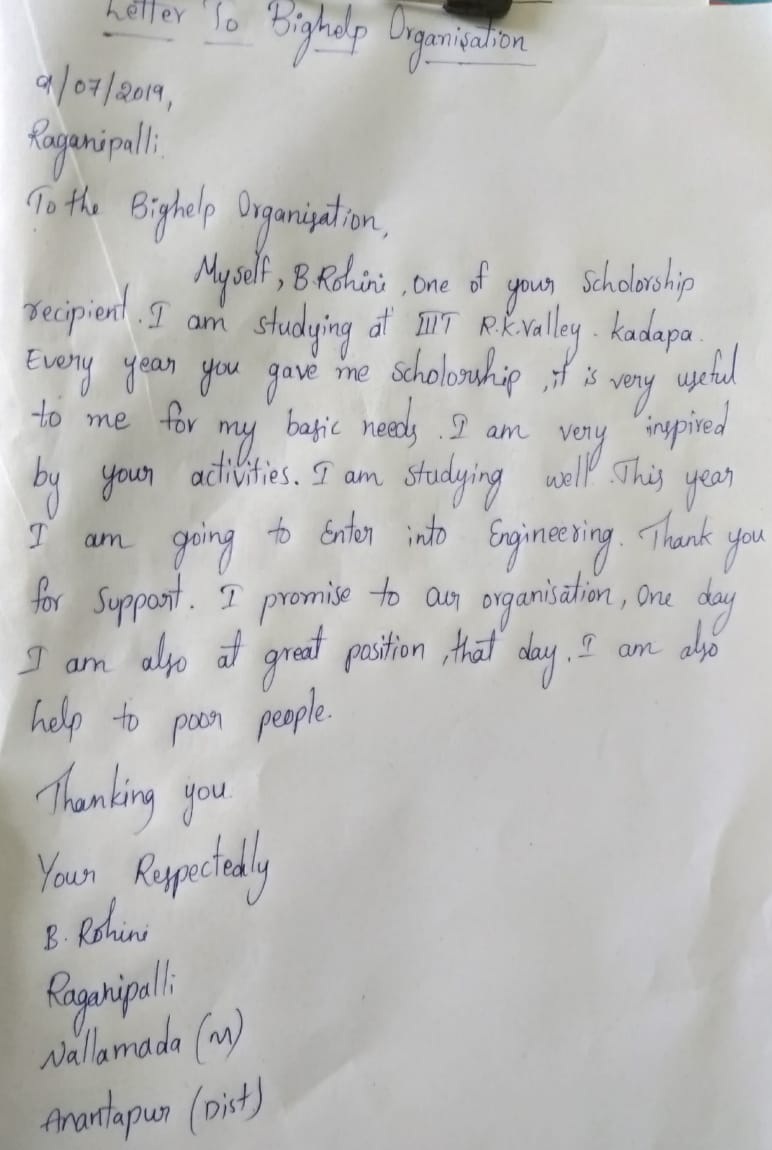 Letter To Bighelp Organisation
9/07/2019,
Raganipalli.
To the Bighelp Organisation,
Myself, B.Rohini, One of your Scholorship
recipient. I am studying at IIIT R.K.Valley - Kadapa.
Every year you gave me Scholorship, it is very useful
to me for my basic needs. I am very inspired
by your activities. I am studying well. This year
I am going to Enter into Engineering. Thank you
for Support. I promise to our organisation, One day
I am also at great position, that day, I am also
help to poor people.
Thanking you.
Your Respectedly
B. Rohini
Raganipalli
Nallamada (M)
Anantapur (Dist)